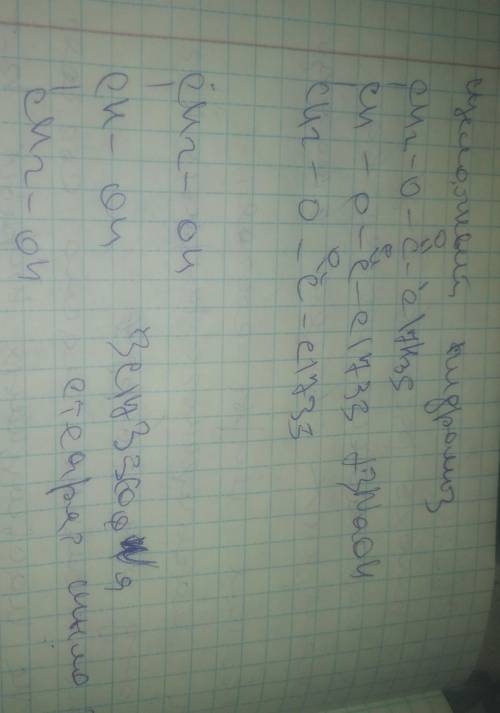 щелочной гидролиз
CH2 - O - C - C17H35
O
CH - O - C - C1733 + 3NaOH
O
CH2 - O - C - C1733
O
CH2 - OH
CH - OH 3C1733COO Na
CH2 - OH стеарат